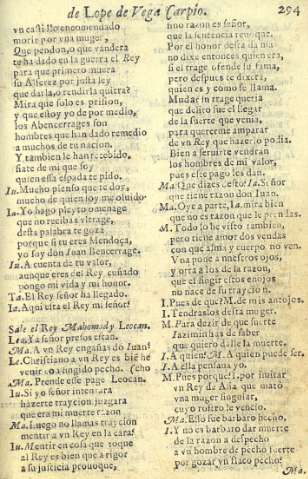 de Lope de Vega Carpio. 294
vn castillo encomendado
morir por vna muger,
Que pendon, o que vandera
te ha dado en la guerra el Rey
para que primero muera
su Alferez por justa ley
que darla, o rendirla quiera?
Mira que solo es prision,
y que estoy yo de por medio,
los Abencerrages son
hombres que han dado remedio
a muchos de tu nacion.
Y tambien le han recebido,
fiate de mi que soy
quien essa espada te pido.
Iu. Mucho pienso que te doy,
mucho de quien soy me oluido
Ia. Yo hago pleyto omenage
que no recibas vltrage,
desta palabra te goza
porque si tu eres Mendoça,
yo soy don Iuan Bencerrage.
Iu. A cuenta de tu valor,
aunque eres del Rey cuñado
pongo mi vida y mi honor.
Ta. El Rey señor ha llegado.
Ia. Aqui està el Rey mi señor.
Sale el Rey Mahomad y Leocan.
Leo. Ya señor presos estan.
Ma. A vn Rey engañas do Iuan?
Le. Christiano a vn Rey es biẽ he
venir con fingido pecho. (cho
Ma. Prende esse page Leocan.
Iu. Si yo señor intentara
hazerte traycion, juzgara
que era mi muerte razon
Ma. Luego no llamas traycion
mentir a vn Rey en la cara?
Iu. Mentir en cosa que toque
al Rey es bien que a rigor
a su justicia prouoque,
mas no razon es señor,
que la sentencia reuoque.
Por el honor desta dama
no dixe entonces quien era,
si el trage ofende su fama,
pero despues te dixera,
quien es y como se llama.
Mudar in trage queria
que delito fue el llegar
de la suerte que venia,
para quererme amparar
de vn Rey que hazerlo podia.
Bien a seruirte vendran
los hombres de mi valor,
pues este pago les dan.
Ma. Que dizes desto? Ia. Señor
que tiene razon don Iuan.
Ma. Oye a parte, Ia. mira bien
que no es razon que le prendas.
M. Todo lo he visto tambien,
pero tiene amor dos vendas
con que a mas y cuerpo no ven.
Vna pone a nuestros ojos,
y otra a los de la razon,
que el fingir estos enojos
no nace de su traycion.
I. Pues de que? M. de mis antojos.
I. Tendraslos desta muger.
M. Para dezir de que suerte
Iazimin has de saber
que quiero dalle la muerte.
I. A quien? M. A quien puede ser.
I. A ella pensaua yo.
M. Pues porque? I. por imitar
vn Rey de Asia que matò
vna muger singular,
cuyo rostro le vencio.
Ma. Esso fue barbaro hecho,
I. Y no es barbaro dar muerte
de la razon a despecho
a vn hombre de pecho fuerte
por gozar vn flaco pecho?
Ma.